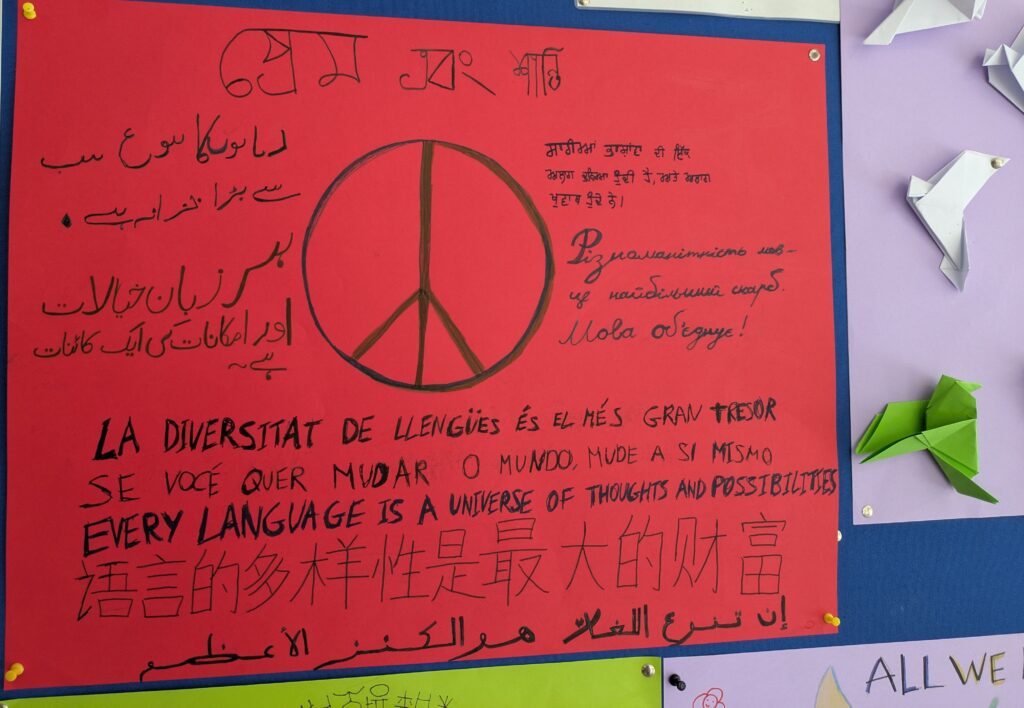 প্রেম এবং শান্তি
زبانوں کا تنوع سب
سے بڑا خزانہ ہے۔
ہر زبان خیالات
اور امکانات کی ایک کائنات
ہے۔
ਸਾਰੀਆਂ ਭਾਸ਼ਾਵਾਂ ਦੀ ਇੱਕ
ਅਲੱਗ ਦੁਨਿਆ ਹੁੰਦੀ ਹੈ, ਅਤੇ ਅਲਗ
Різноманітність мов-
це найбільший скарб.
Мова об'єднує!
LA DIVERSITAT DE LLENGÜES ÉS EL MÉS GRAN TRESOR
SE VOCÊ QUER MUDAR O MUNDO, MUDE A SI MISMO
EVERY LANGUAGE IS A UNIVERSE OF THOUGHTS AND POSSIBILITIES
语言的多样性是最大的财富
إن تنوع اللغات هو الكنز الأعظم
ALL WE